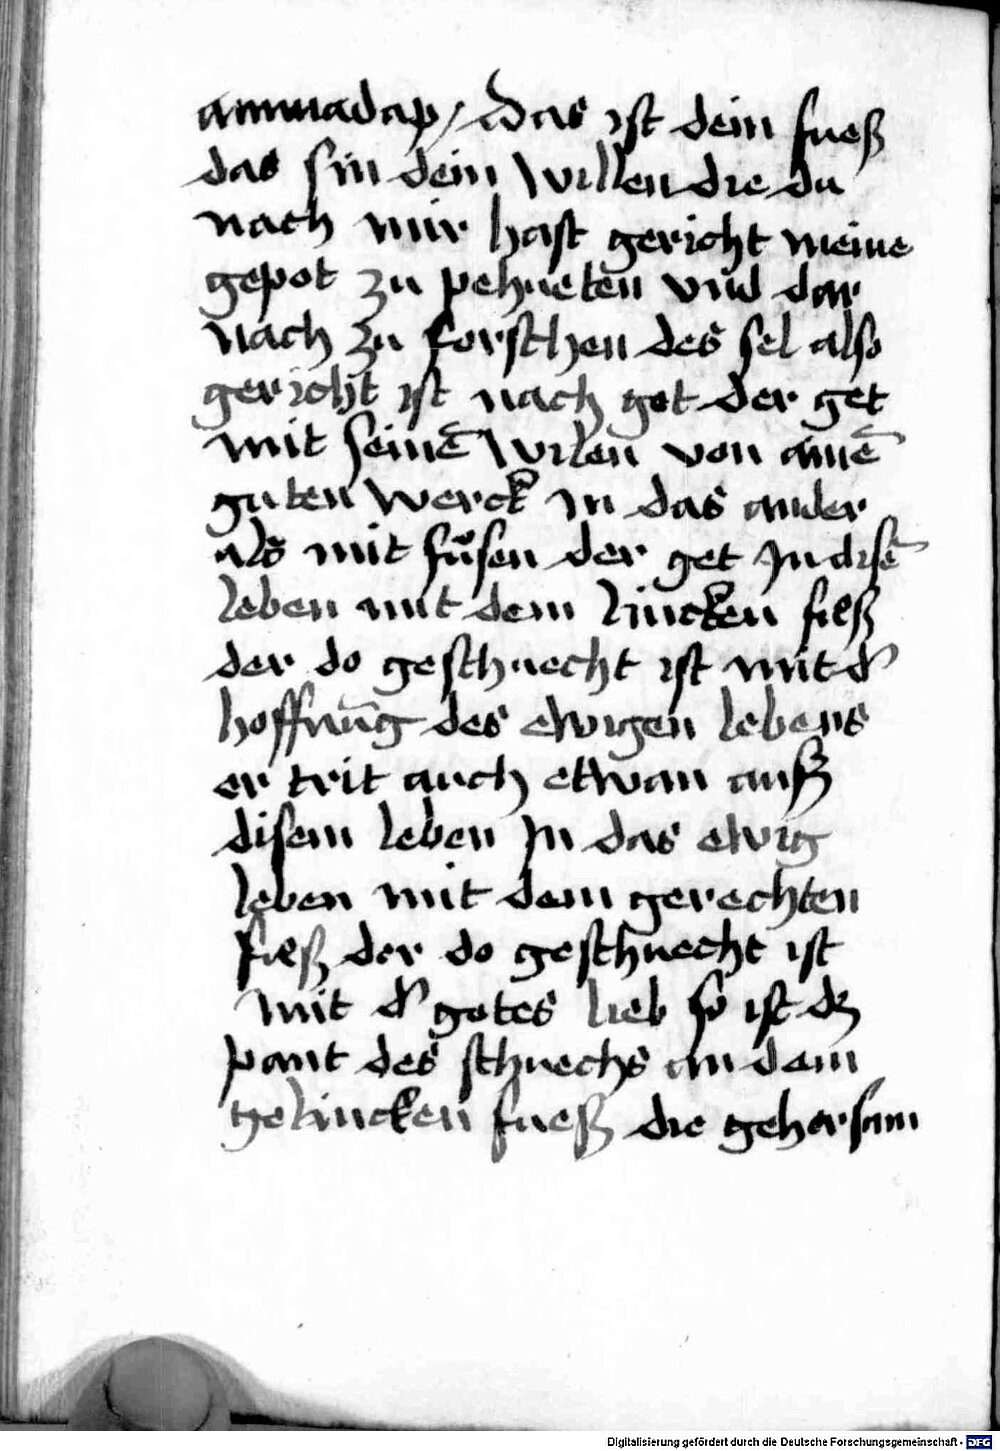 aminadap / Das ist dein fueß
das sin dein willen die du
nach mir hast gericht meine
gepot zu pehueten vnd dar
nach zu forschen des sel also
gericht ist nach got der get
mit seinē wilen von ainē
guten werck in das ander
als mit fůsen der get In disē
leben mit dem lincken fueß
der do geschuecht ist mit d'
hoffnūg des ewigen lebens
er trit auch etwan auß
disem leben In das ewig
leben mit dem gerechten
fueß der do geschuecht ist
mit d' gotes lieb so ist dz
pant des schuechs an dem
gelincken fueß die gehorsam
Digitalisierung gefördert durch die Deutsche Forschungsgemeinschaft - DFG